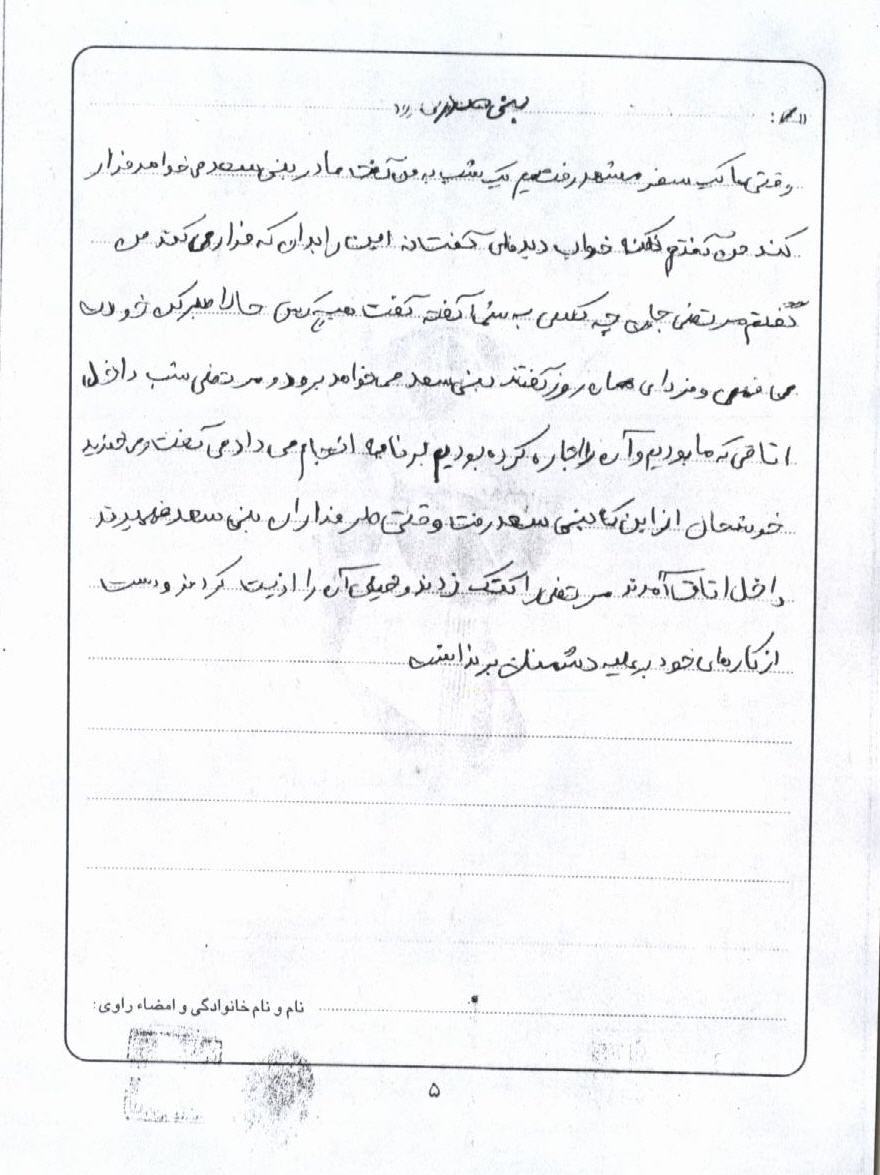 وقتی ما یک سفر مشهد رفتیم یک شب به من گفت مادر بنی سعد می خواهد فرار
کند من گفتم نکنه خواب دیده‌ای گفت نه این را بدان که فرار می کند من
گفتم مرتضی جان چه کسی به شما گفته گفت هیچ کس حالا صبر کن خودت
می فهمی و فردای همان روز گفتند بنی سعد می خواهد برود و مرتضی شب داخل
اتاقی که ما بودیم و آن را اجاره کرده بودیم برنامه انجام می داد می گفت و می خندید
خوشحال از این که بنی سعد رفت وقتی طرفداران بنی سعد فهمیدند
داخل اتاق آمدند مرتضی را کتک زدند و خیلی آن را اذیت کردند و دست
از کارهای خود بر علیه دشمنان برنداشت
نام و نام خانوادگی و امضاء راوی:
۵